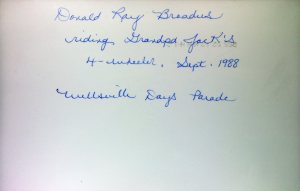 Donald Ray Broadus
riding Grandpa Jack's
4-wheeler. Sept. 1988
Wellsville Days Parade